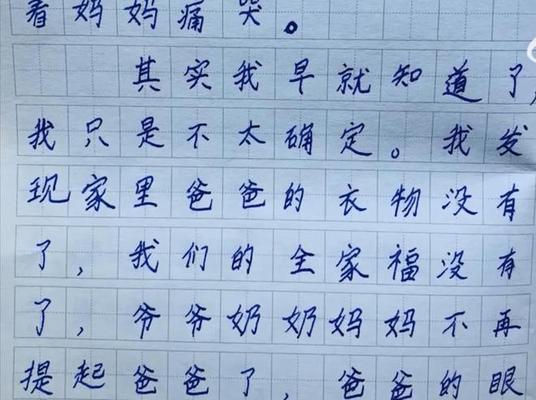 看妈妈痛哭。
其实我早就知道了，
我只是不太确定。我发
现家里爸爸的衣物没有
了，我们的全家福没有
了，爷爷奶奶妈妈不再
提起爸爸了，爸爸的眼